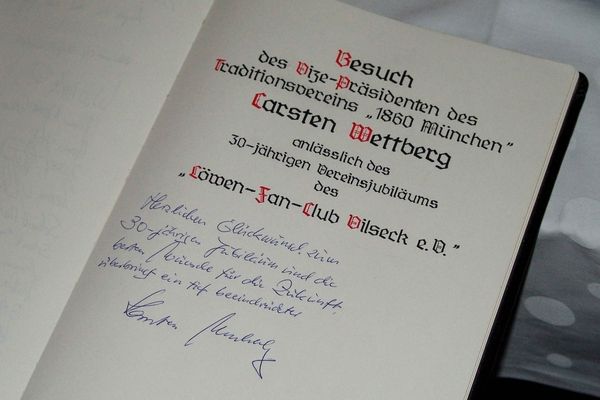 Besuch
des Vize-Präsidenten des
Traditionsvereins „1860 München"
Carsten Wettberg
anlässlich des
30-jährigen Vereinsjubiläums
des
„Löwen-Fan-Club Vilseck e.V."
Herzlichen Glückwunsch zum
30-jährigen Jubiläum und die
besten Wünsche für die Zukunft,
überbringt ein tief beeindruckter
Karsten